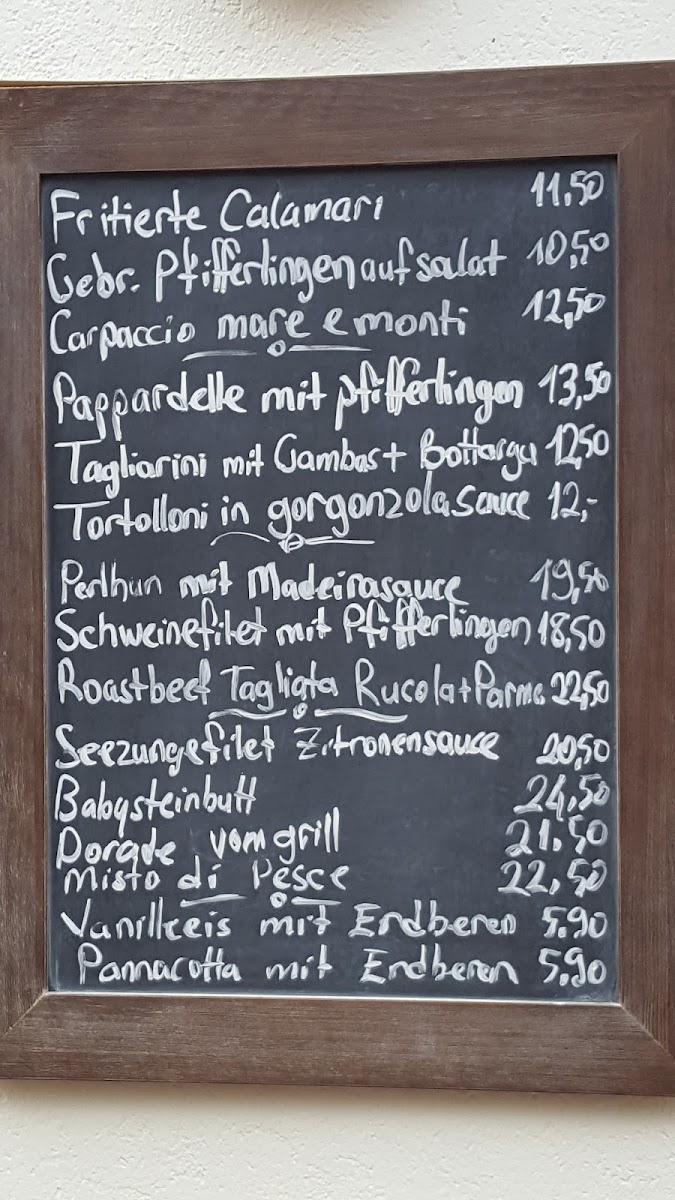 Fritierte Calamari 11,50
Gebr. Pfifferlingen auf salat 10,50
Carpaccio mare e monti 12,50
Pappardelle mit pfifferlingen 13,50
Tagliarini mit Gambas + Bottarga 12,50
Tortolloni in gorgonzola sauce 12,-
Perlhun mit Madeirasauce 19,50
Schweinefilet mit Pfifferlingen 18,50
Roastbeef Tagliata Rucola + Parma 22,50
Seezungefilet Zitronensauce 20,50
Babysteinbutt 24,50
Dorade vom grill 21,50
Misto di Pesce 22,50
Vanilleeis mit Erdberen 5.90
Pannacotta mit Erdberen 5.90